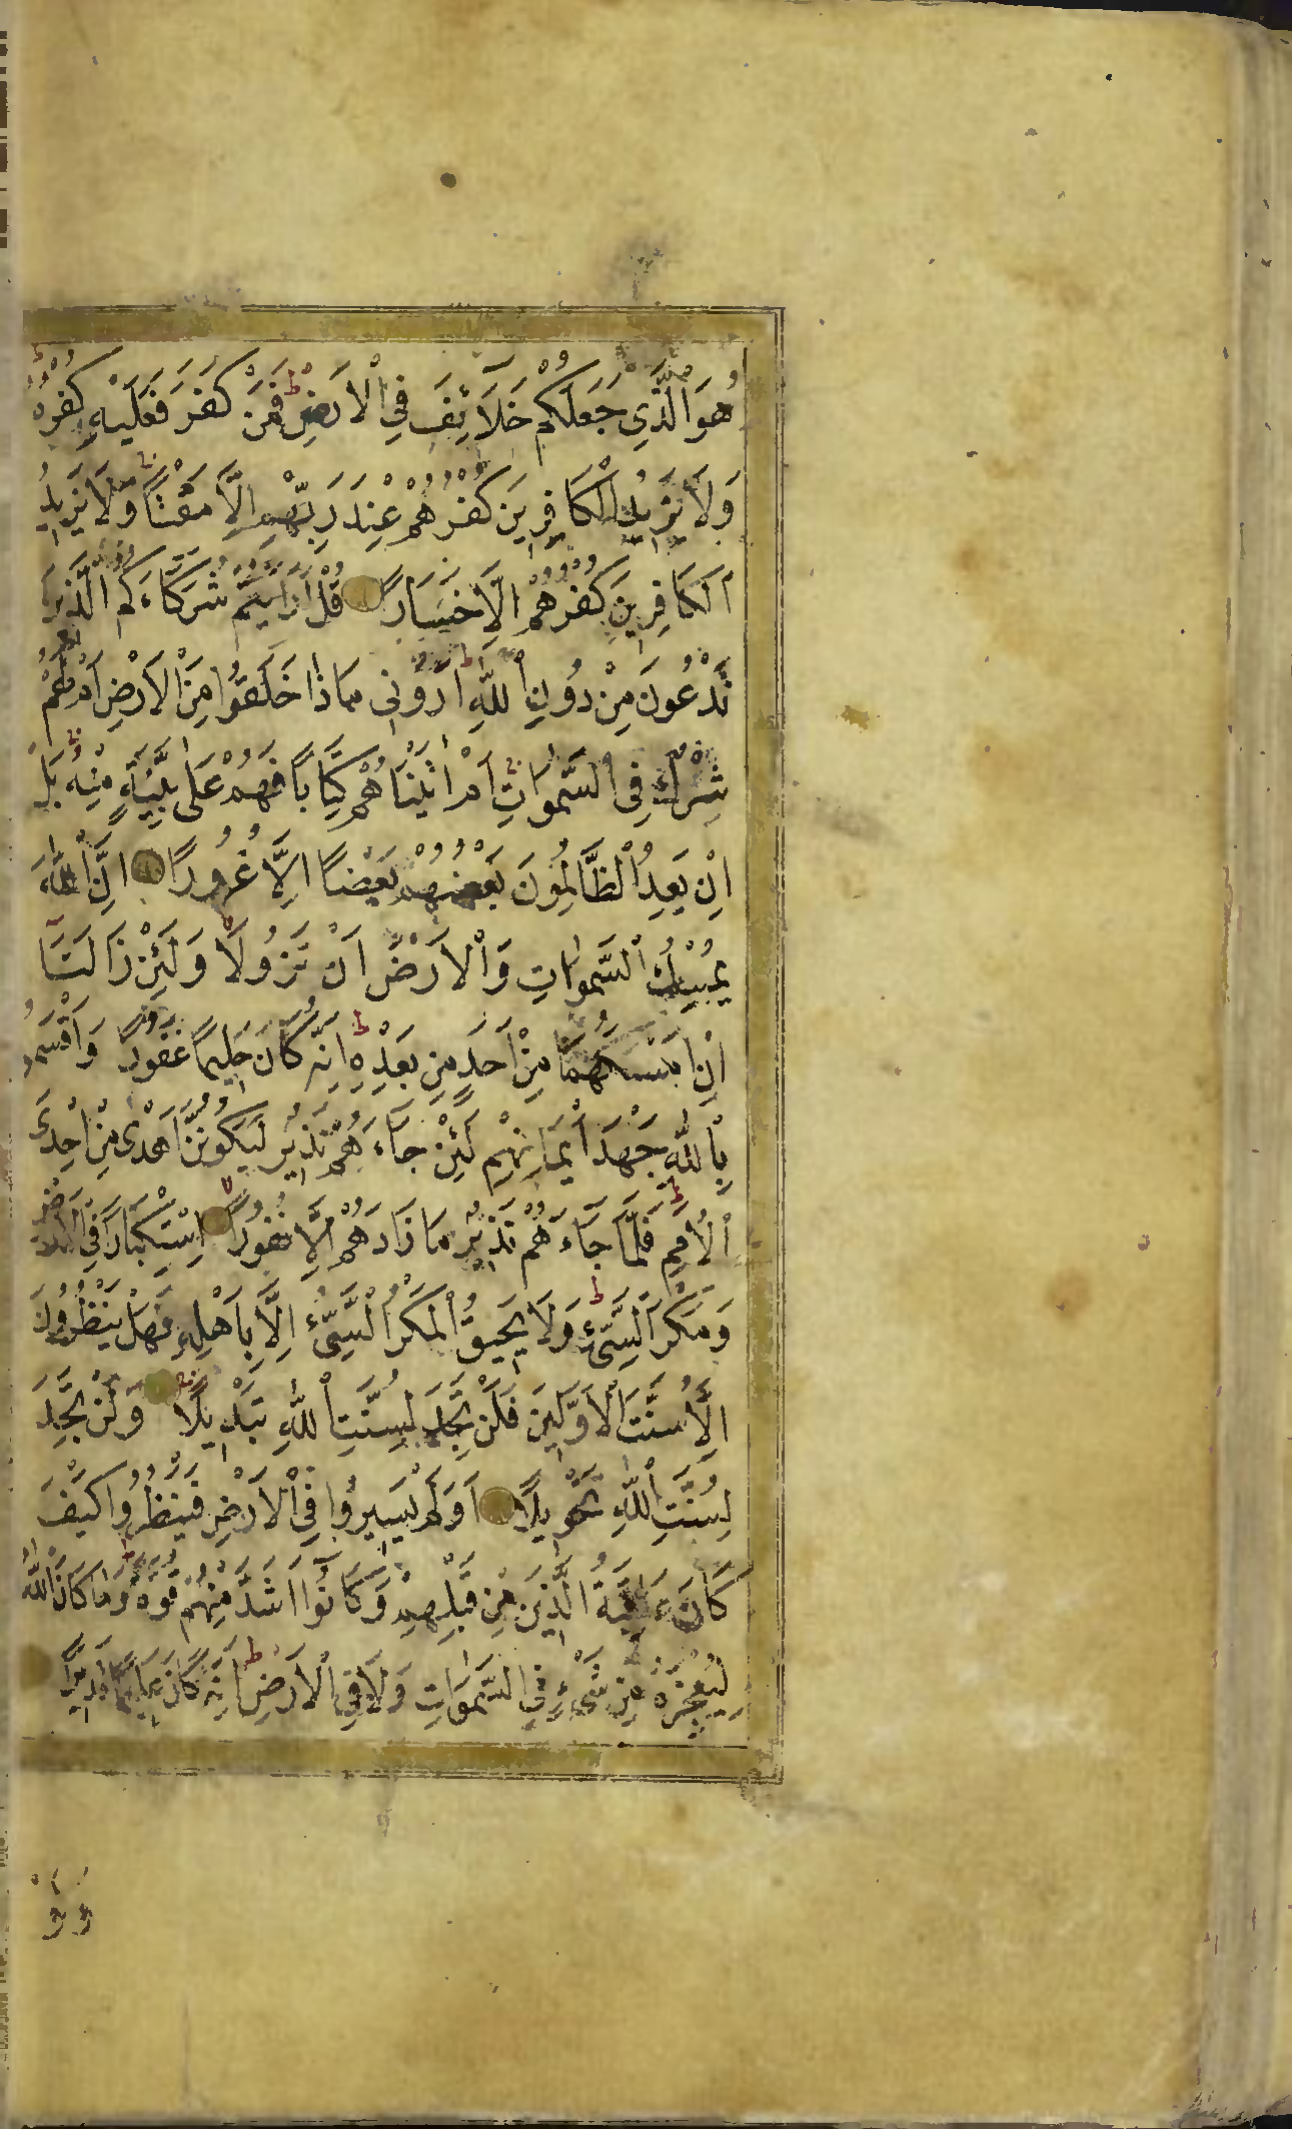 هُوَ الَّذِي جَعَلَكُمْ خَلَائِفَ فِي الْاَرْضِ فَمَنْ كَفَرَ فَعَلَيْهِ كُفْرُهُ
وَلَا يَزِيدُ الْكَافِرِينَ كُفْرُهُمْ عِنْدَ رَبِّهِمْ اِلَّا مَقْتًا وَلَا يَزِيدُ
الْكَافِرِينَ كُفْرُهُمْ اِلَّا خَسَارًا قُلْ اَرَاَيْتُمْ شُرَكَاءَكُمُ الَّذِينَ
تَدْعُونَ مِنْ دُونِ اللّٰهِ اَرُونِي مَاذَا خَلَقُوا مِنَ الْاَرْضِ اَمْ لَهُمْ
شِرْكٌ فِي السَّمٰوَاتِ اَمْ اٰتَيْنَاهُمْ كِتَابًا فَهُمْ عَلٰى بَيِّنَةٍ مِنْهُ بَلْ
اِنْ يَعِدُ الظَّالِمُونَ بَعْضُهُمْ بَعْضًا اِلَّا غُرُورًا اِنَّ اللّٰهَ
يُمْسِكُ السَّمٰوَاتِ وَالْاَرْضَ اَنْ تَزُولَا وَلَئِنْ زَالَتَا
اِنْ اَمْسَكَهُمَا مِنْ اَحَدٍ مِنْ بَعْدِهِ اِنَّهُ كَانَ حَلِيمًا غَفُورًا وَاَقْسَمُوا
بِاللّٰهِ جَهْدَ اَيْمَانِهِمْ لَئِنْ جَاءَهُمْ نَذِيرٌ لَيَكُونُنَّ اَهْدٰى مِنْ اِحْدَى
الْاُمَمِ فَلَمَّا جَاءَهُمْ نَذِيرٌ مَا زَادَهُمْ اِلَّا نُفُورًا اِسْتِكْبَارًا فِي الْاَرْضِ
وَمَكْرَ السَّيِّئِ وَلَا يَحِيقُ الْمَكْرُ السَّيِّئُ اِلَّا بِاَهْلِهِ فَهَلْ يَنْظُرُونَ
اِلَّا سُنَّتَ الْاَوَّلِينَ فَلَنْ تَجِدَ لِسُنَّتِ اللّٰهِ تَبْدِيلًا وَلَنْ تَجِدَ
لِسُنَّتِ اللّٰهِ تَحْوِيلًا اَوَلَمْ يَسِيرُوا فِي الْاَرْضِ فَيَنْظُرُوا كَيْفَ
كَانَ عَاقِبَةُ الَّذِينَ مِنْ قَبْلِهِمْ وَكَانُوا اَشَدَّ مِنْهُمْ قُوَّةً وَمَا كَانَ اللّٰهُ
لِيُعْجِزَهُ مِنْ شَيْءٍ فِي السَّمٰوَاتِ وَلَا فِي الْاَرْضِ اِنَّهُ كَانَ عَلِيمًا قَدِيرًا
وَلَوْ